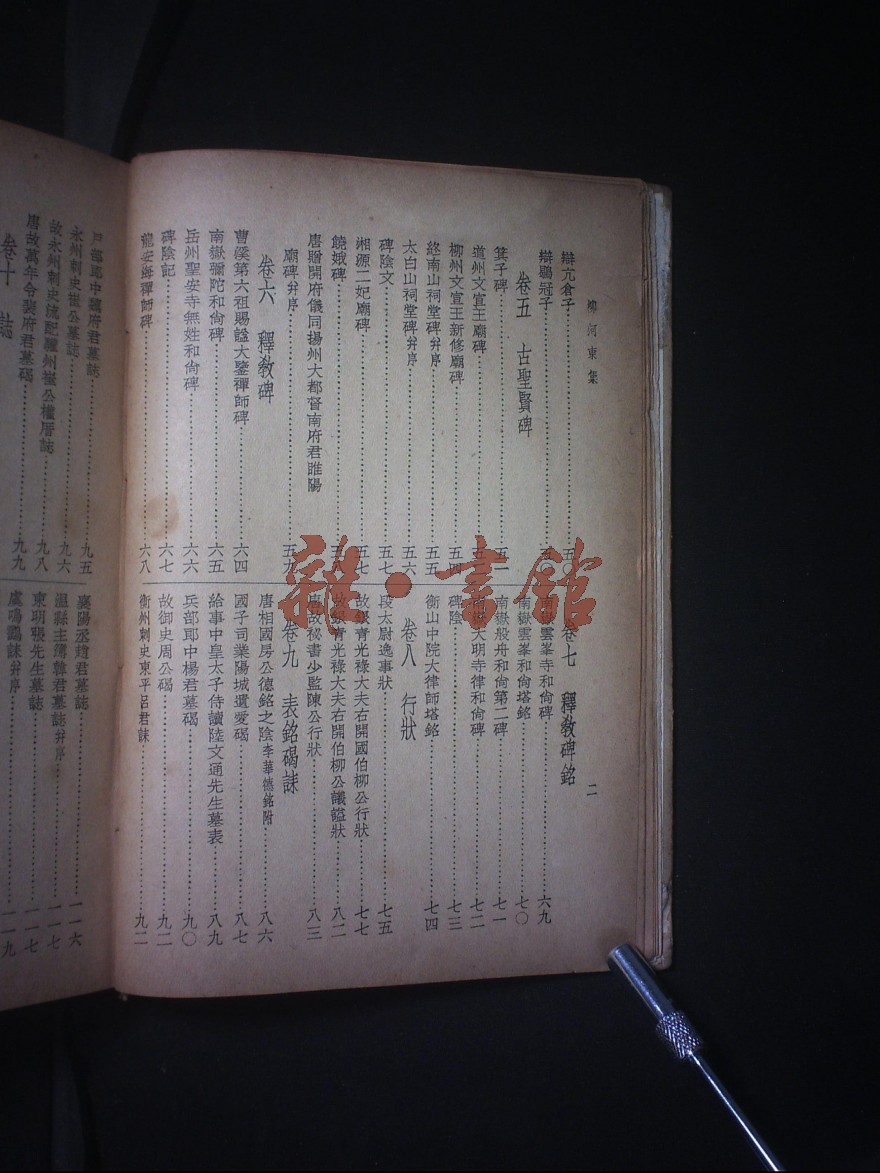 柳河東集
二
辯亢倉子……五〇
辯鶡冠子……五〇
卷五 古聖賢碑
箕子碑……五一
道州文宣王廟碑……五
柳州文宣王新修廟碑……五四
終南山祠堂碑并序……五五
太白山祠堂碑并序……五六
碑陰文……五七
湘源二妃廟碑……五七
饒娥碑……五八
唐贈開府儀同揚州大都督南府君睢陽
廟碑并序……五九
卷六 釋教碑
曹溪第六祖賜謚大鑒禪師碑……六四
南嶽彌陀和尚碑……六五
岳州聖安寺無姓和尚碑……六六
碑陰記……六七
龍安海禪師碑……六八
卷七 釋教碑銘
南嶽雲峯寺和尚碑……六九
南嶽雲峯和尚塔銘……七〇
南嶽般舟和尚第二碑……七一
南嶽大明寺律和尚碑……七二
碑陰……七三
衡山中院大律師塔銘……七四
卷八 行狀
段太尉逸事狀……七五
故銀青光祿大夫右開國伯柳公行狀……七七
故銀青光祿大夫右開伯柳公議謚狀……八二
唐故秘書少監陳公行狀……八三
卷九 表銘碣誄
唐相國房公德銘之陰李華德銘附……八六
國子司業陽城遺愛碣……八七
給事中皇太子侍讀陸文通先生墓表……八九
兵部郎中楊君墓碣……九〇
故御史周公碣……九二
衡州刺史東平呂君誄……九二
戶部郎中魏府君墓誌……九五
永州刺史崔公墓誌……九六
故永州刺史流配驩州崔公權厝誌……九八
唐故萬年令裴府君墓碣……九九
卷十 誌
襄陽丞趙君墓誌……一一六
溫縣主簿韓君墓誌并序……一一七
東明張先生墓誌……一一七
虞鳴鶴誄并序……一一九
雜·書館